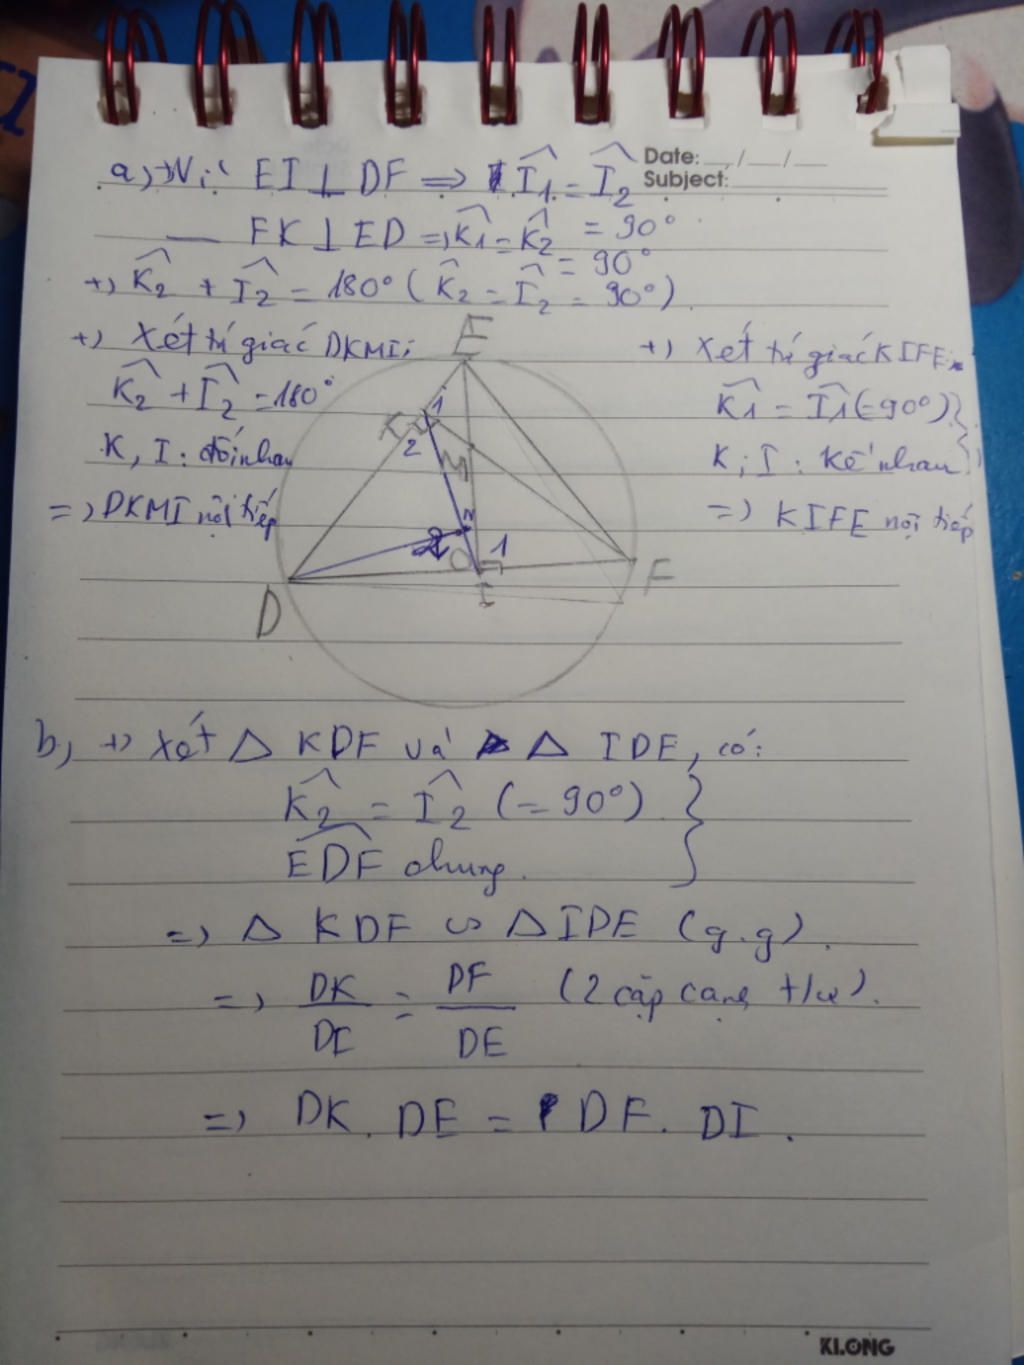 a, +) Vì EI ⊥ DF => Î1 = Î2 = 90°
Date: __/__/__
Subject:
FK ⊥ ED => K̂1 = K̂2 = 90°
+) K̂2 + Î2 = 180° (K̂2 = Î2 = 90°)
+) Xét tứ giác DKMI:
K̂2 + Î2 = 180°
K, I: đối nhau
=> DKMI nội tiếp
+) Xét tứ giác KIFE:
K̂1 = Î1 (=90°)
K; I: Kề nhau
=> KIFE nội tiếp
E
K 1
2
M
2
O 1
D
I
F
b, +) Xét △ KDF và △ IDE, có:
K̂2 = Î2 (= 90°)
EDF chung.
=> △ KDF ∽ △ IDE (g.g).
=> DK/DI = DF/DE (2 cặp cạnh t/ư).
=> DK. DE = DF. DI.
KLONG